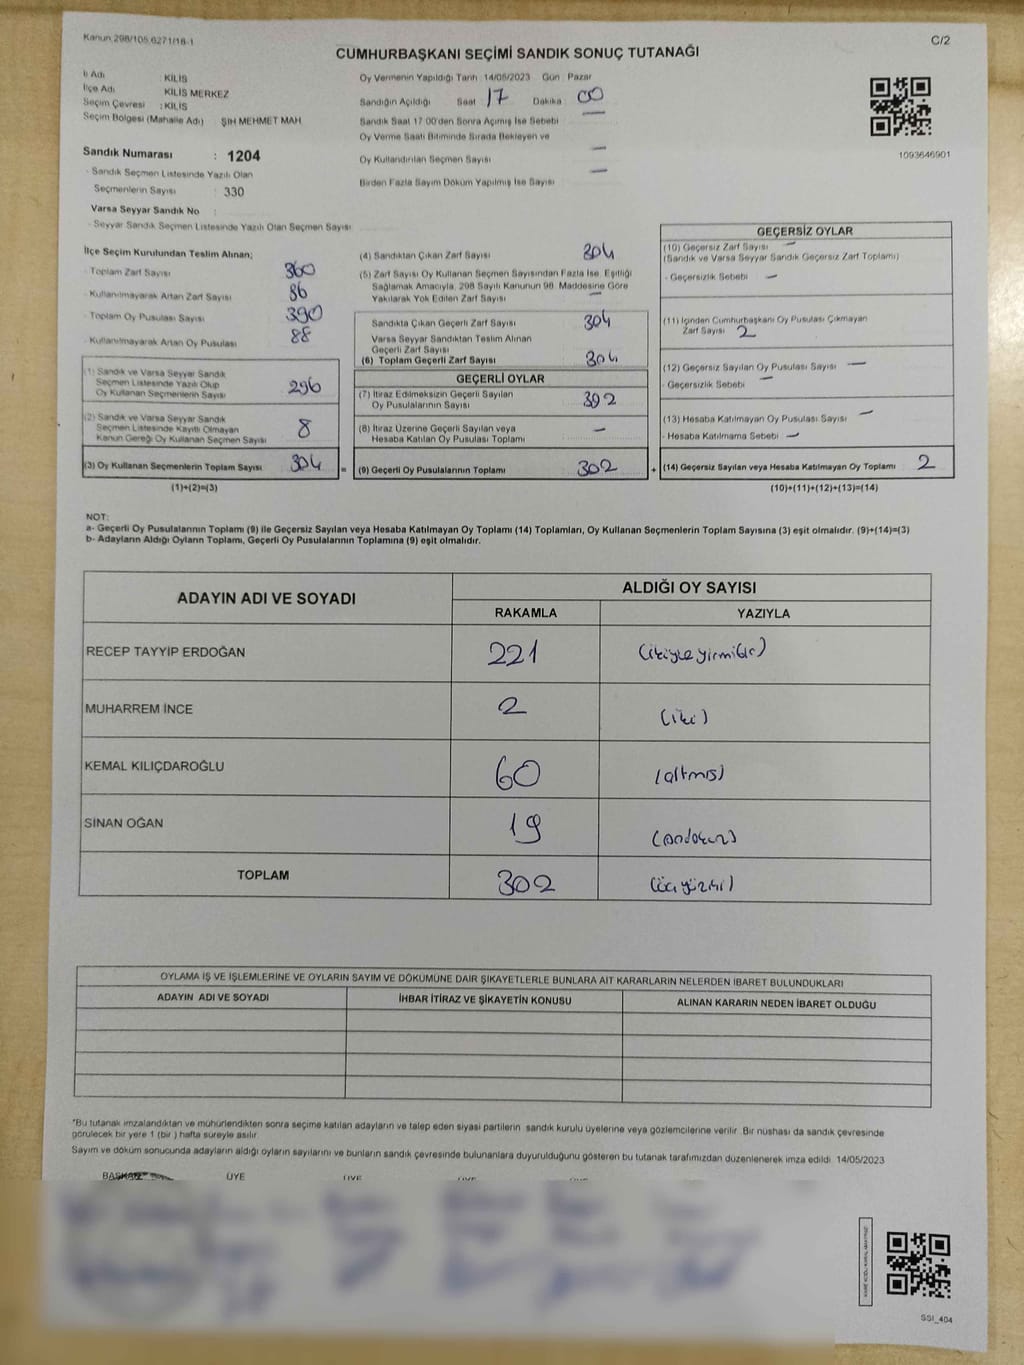 Kanun 298/105,6271/18-1
C/2
CUMHURBAŞKANI SEÇİMİ SANDIK SONUÇ TUTANAĞI
İl Adı : KİLİS
İlçe Adı : KİLİS MERKEZ
Seçim Çevresi : KİLİS
Seçim Bölgesi (Mahalle Adı) ŞIH MEHMET MAH.
Oy Vermenin Yapıldığı Tarih 14/05/2023 Gün Pazar
Sandığın Açıldığı Saat 17 Dakika 00
Sandık Saat 17:00'den Sonra Açımış İse Sebebi —
Oy Verme Saati Bitiminde Sırada Bekleyen ve
Oy Kullandırılan Seçmen Sayısı —
Birden Fazla Sayım Döküm Yapılmış İse Sayısı —
1093646901
Sandık Numarası : 1204
- Sandık Seçmen Listesinde Yazılı Olan
Seçmenlerin Sayısı : 330
Varsa Seyyar Sandık No :
- Seyyar Sandık Seçmen Listesinde Yazılı Olan Seçmen Sayısı:
İlçe Seçim Kurulundan Teslim Alınan;
- Toplam Zarf Sayısı 360
- Kullanılmayarak Artan Zarf Sayısı 86
- Toplam Oy Pusulası Sayısı 390
- Kullanılmayarak Artan Oy Pusulası 88
(1) Sandık ve Varsa Seyyar Sandık
Seçmen Listesinde Yazılı Olup
Oy Kullanan Seçmenlerin Sayısı 296
(2) Sandık ve Varsa Seyyar Sandık
Seçmen Listesinde Kayıtlı Olmayan
Kanun Gereği Oy Kullanan Seçmen Sayısı 8
(3) Oy Kullanan Seçmenlerin Toplam Sayısı 304 =
(1)+(2)=(3)
(4) Sandıktan Çıkan Zarf Sayısı 304
(5) Zarf Sayısı Oy Kullanan Seçmen Sayısından Fazla İse, Eşitliği
Sağlamak Amacıyla, 298 Sayılı Kanunun 98. Maddesine Göre
Yakılarak Yok Edilen Zarf Sayısı —
Sandıkta Çıkan Geçerli Zarf Sayısı 304
Varsa Seyyar Sandıktan Teslim Alınan
Geçerli Zarf Sayısı
(6) Toplam Geçerli Zarf Sayısı 304
GEÇERLİ OYLAR
(7) İtiraz Edilmeksizin Geçerli Sayılan
Oy Pusulalarının Sayısı 392
(8) İtiraz Üzerine Geçerli Sayılan veya
Hesaba Katılan Oy Pusulası Toplamı —
(9) Geçerli Oy Pusulalarının Toplamı 302 +
GEÇERSİZ OYLAR
(10) Geçersiz Zarf Sayısı —
(Sandık ve Varsa Seyyar Sandık Geçersiz Zarf Toplamı)
- Geçersizlik Sebebi —
(11) İçinden Cumhurbaşkanı Oy Pusulası Çıkmayan
Zarf Sayısı 2
(12) Geçersiz Sayılan Oy Pusulası Sayısı —
- Geçersizlik Sebebi —
(13) Hesaba Katılmayan Oy Pusulası Sayısı —
- Hesaba Katılmama Sebebi —
(14) Geçersiz Sayılan veya Hesaba Katılmayan Oy Toplamı 2
(10)+(11)+(12)+(13)=(14)
NOT:
a- Geçerli Oy Pusulalarının Toplamı (9) ile Geçersiz Sayılan veya Hesaba Katılmayan Oy Toplamı (14) Toplamları, Oy Kullanan Seçmenlerin Toplam Sayısına (3) eşit olmalıdır. (9)+(14)=(3)
b- Adayların Aldığı Oyların Toplamı, Geçerli Oy Pusulalarının Toplamına (9) eşit olmalıdır.
ADAYIN ADI VE SOYADI ALDIĞI OY SAYISI
RAKAMLA YAZIYLA
RECEP TAYYİP ERDOĞAN 221 (ikiyüzyirmibir)
MUHARREM İNCE 2 (iki)
KEMAL KILIÇDAROĞLU 60 (altmış)
SİNAN OĞAN 19 (ondokuz)
TOPLAM 302 (üçyüziki)
OYLAMA İŞ VE İŞLEMLERİNE VE OYLARIN SAYIM VE DÖKÜMÜNE DAİR ŞİKAYETLERLE BUNLARA AİT KARARLARIN NELERDEN İBARET BULUNDUKLARI
ADAYIN ADI VE SOYADI İHBAR İTİRAZ VE ŞİKAYETİN KONUSU ALINAN KARARIN NEDEN İBARET OLDUĞU
*Bu tutanak imzalandıktan ve mühürlendikten sonra seçime katılan adayların ve talep eden siyasi partilerin sandık kurulu üyelerine veya gözlemcilerine verilir. Bir nüshası da sandık çevresinde
görülecek bir yere 1 (bir ) hafta süreyle asılır.
Sayım ve döküm sonucunda adayların aldığı oyların sayılarını ve bunların sandık çevresinde bulunanlara duyurulduğunu gösteren bu tutanak tarafımızdan düzenlenerek imza edildi. 14/05/2023
BAŞKAN ÜYE ÜYE ÜYE ÜYE
SSI_404